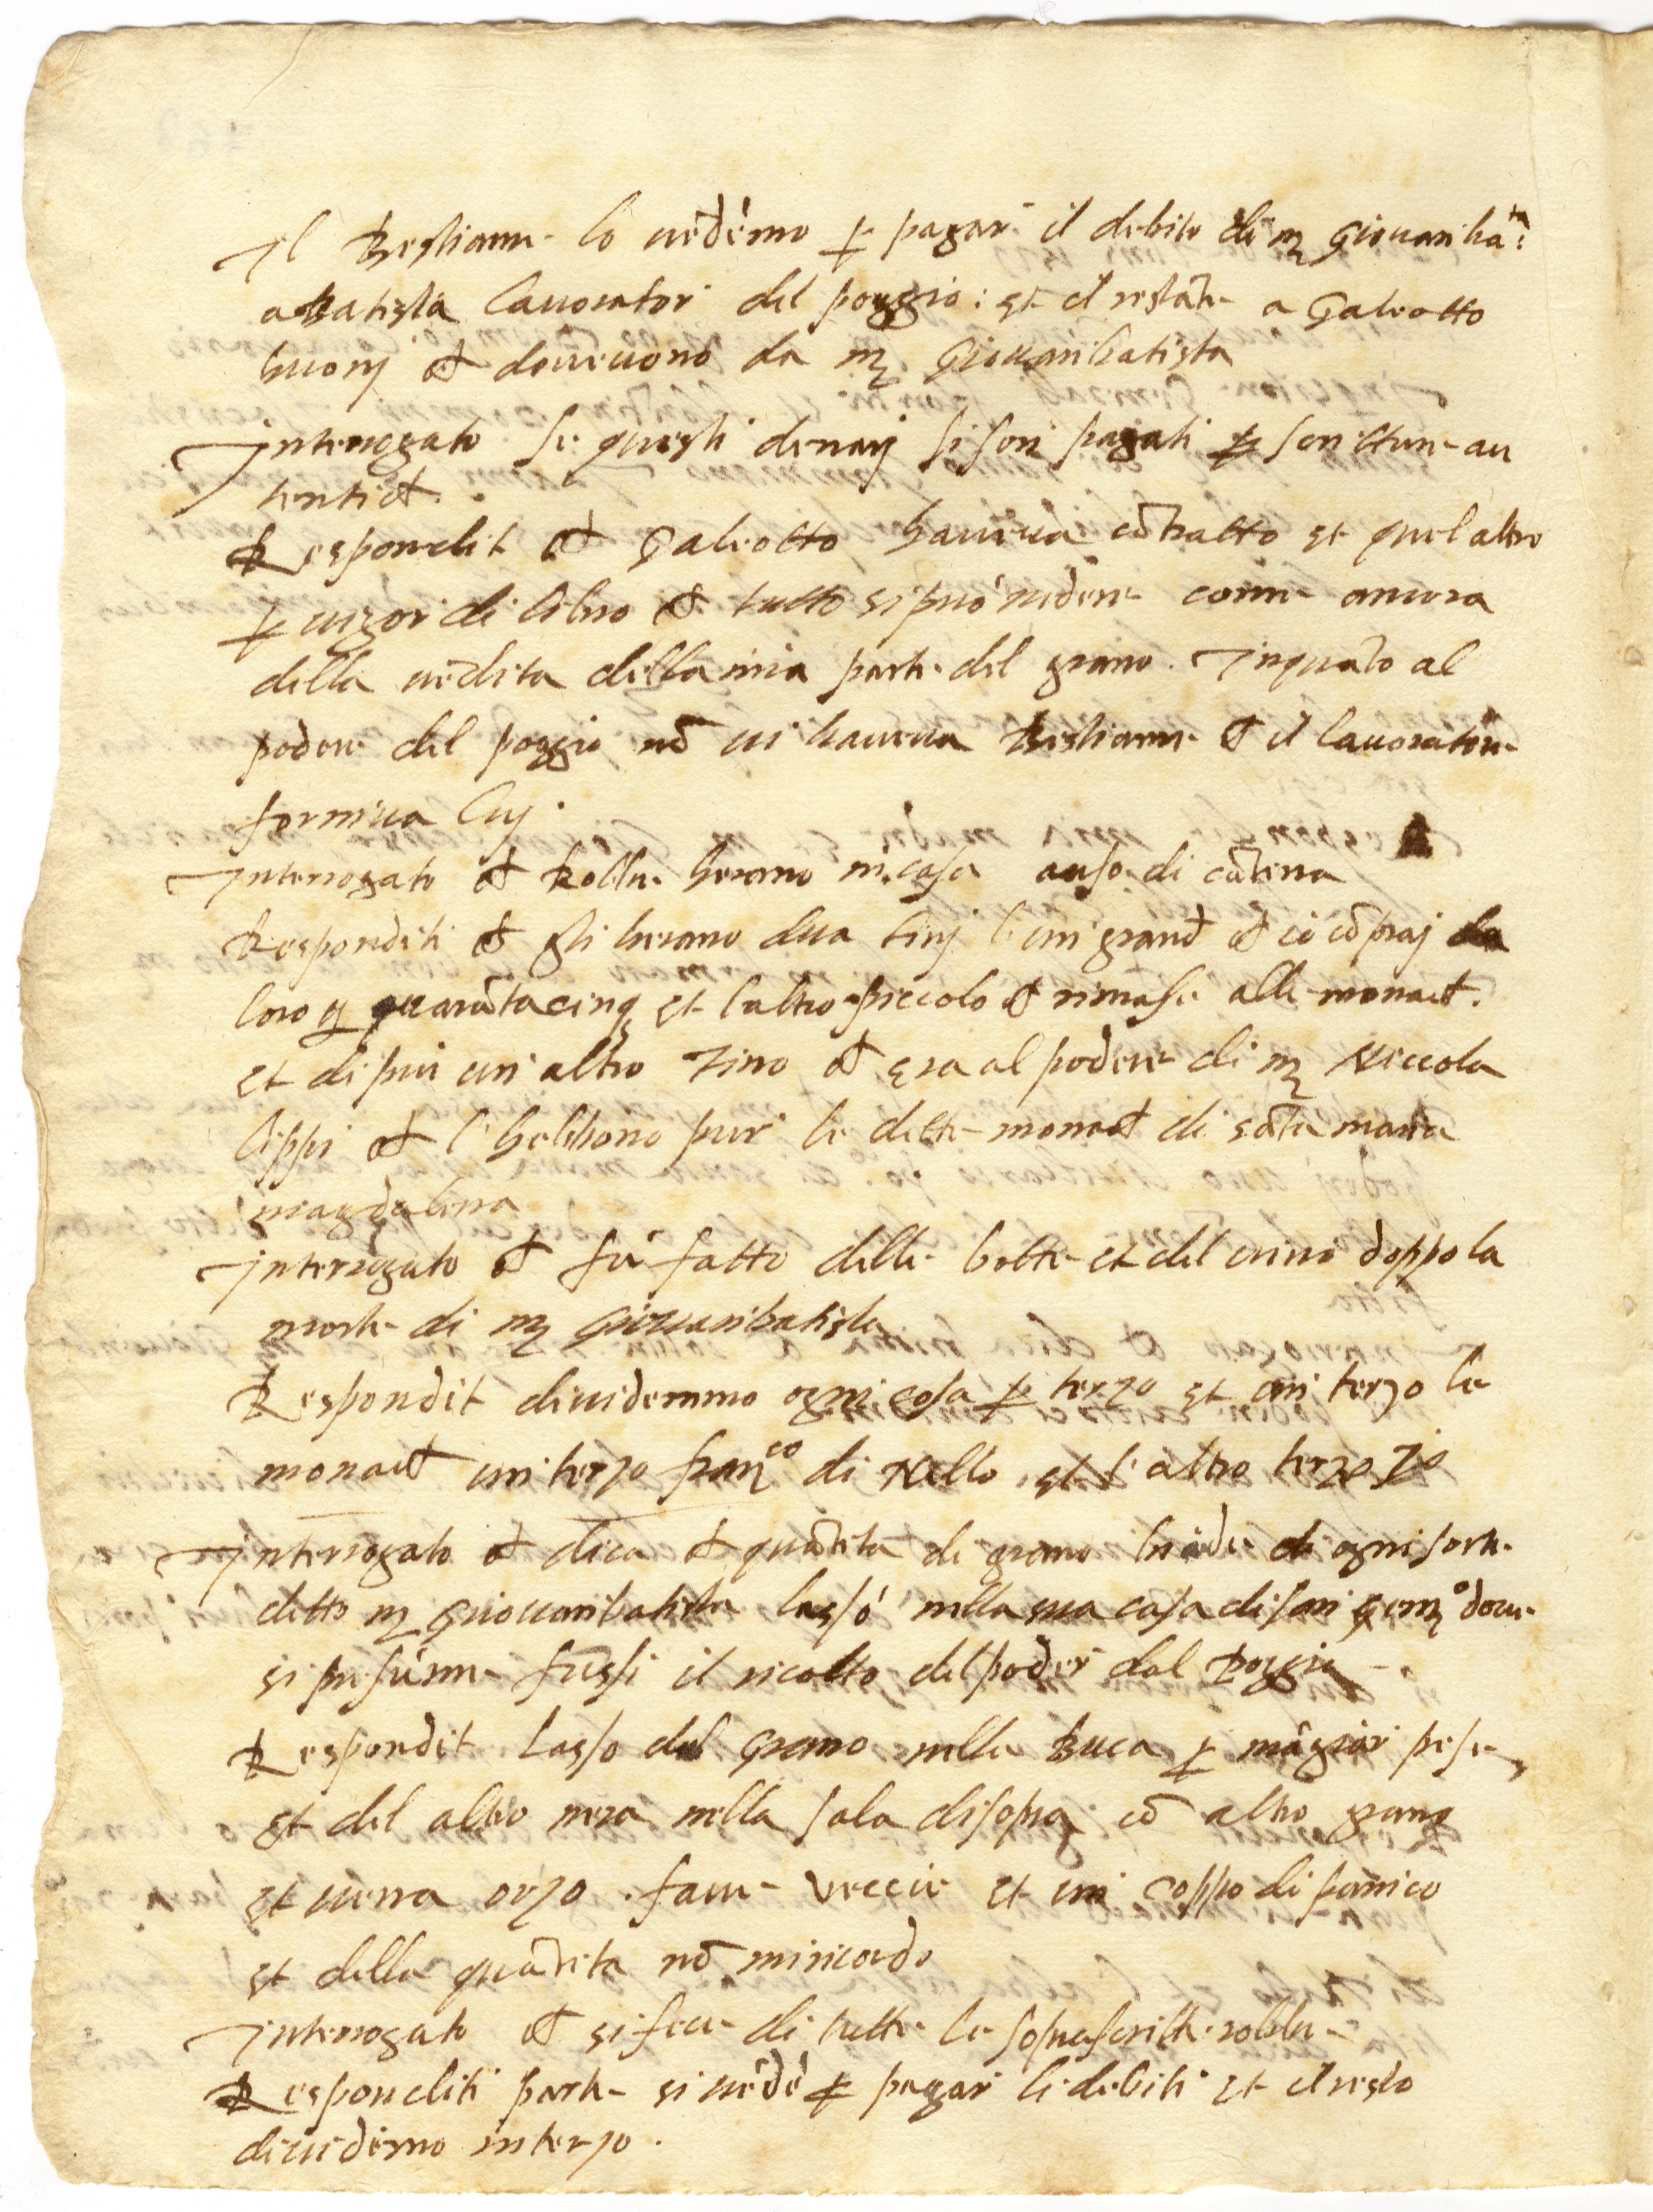 Il Bestiame lo vēdemo ꝑ pagar il debito di mʒ Giovanba:ᵗᵃ
a Batista lavorator del poggio: et il restāte a Galeotto
huonj cħ dovevono da mʒ Giovanbatista
Interrogato se questi denarj si son pagati ꝑ scritture au
tenticħ.
Respondit cħ Galeotto haveva cōtratto et quel altro
ꝑ vigor di libro cħ tutto si può vedere come ancora
della vēdita della mia parte del grano. Inquāto al
podere del poggio nō vi haveva Bestiame cħ il lavoratore
forniva luj.
Interrogato cħ Robbe herano in casa auso di cātina
Responditi cħ gli herano dua tinj l'un grand cħ io cōpraj da
loro quarātacinqʒ et l'altro piccolo cħ rimase alle monacħ.
et di piu un altro Tino cħ era al podere di mʒ Niccola
lippi cħ l'hebbono pur le dette monacħ di sāta maria
magdalena
Interrogato cħ fu fatto delle botte et del vino doppo la
morte di mʒ Giovanbatista
Respondit dividemmo ogni cosa ꝑ terzo et un terzo le
monacħ un terzo franᶜᵒ di Nello, et l'altro terzo Io
Interrogato cħ dica cħ quātita di grano biade di ogni sorte
detto mʒ Giovanbatista lassò nella sua casa di san gemᵒ dove
si presume fussi il ricolto del poder dal Poggio
Respondit Lasso del Grano nella Buca ꝑ maggior pese
et del altro nera nella sala di sopra cō altro grano
et verra orzo. fave veccie et un coppo di panico
et della quātita nō mi ricordo
Interrogato cħ si fece di tutte le sopra scritte robbe
Responditi parte si vēdè ꝑ pagar li debiti et il resto
dividemo in terzo.